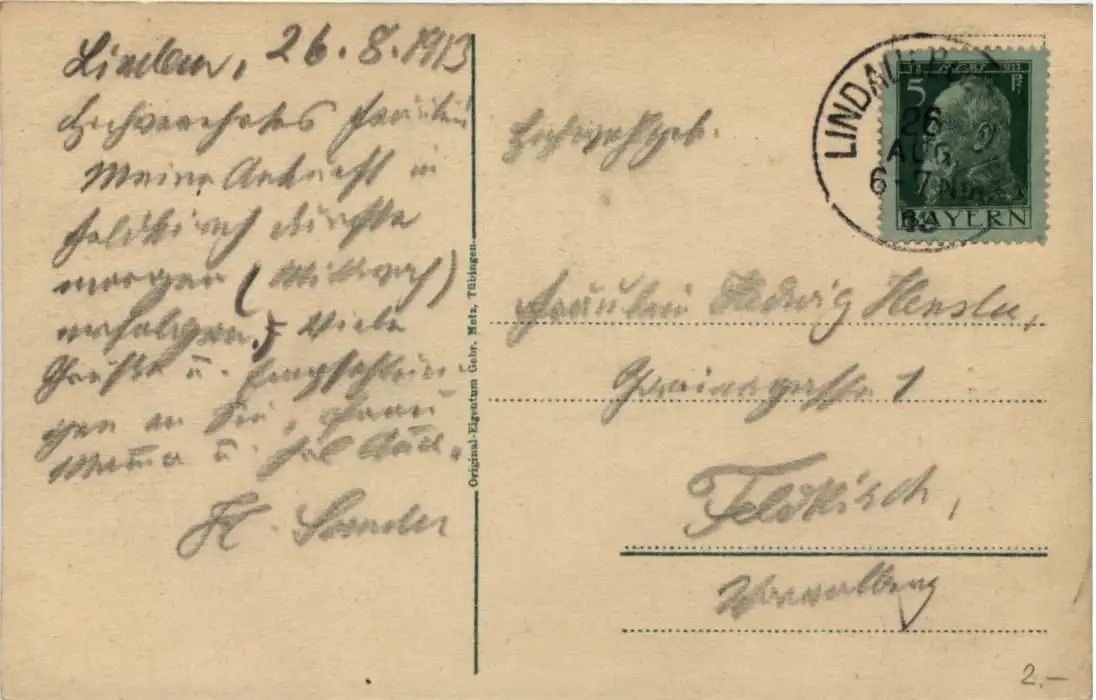 Lindau, 26.8.1913
Hochverehrtes Fräulein
Meine Ankunft in
Feldkirch dürfte
morgen (Mittwoch)
erfolgen. Viele
Grüße u. Empfehlun-
gen an Sie, Frau
Mama u.
H. Sander
Original-Eigentum Gebr. Metz, Tübingen.
LINDAU
26
AUG
6-7 Nm
5 Pf
1911
BAYERN
Hochwohlgeb.
Fräulein Hedwig Hensler,
1
Feldkirch,
Vorarlberg
2.-